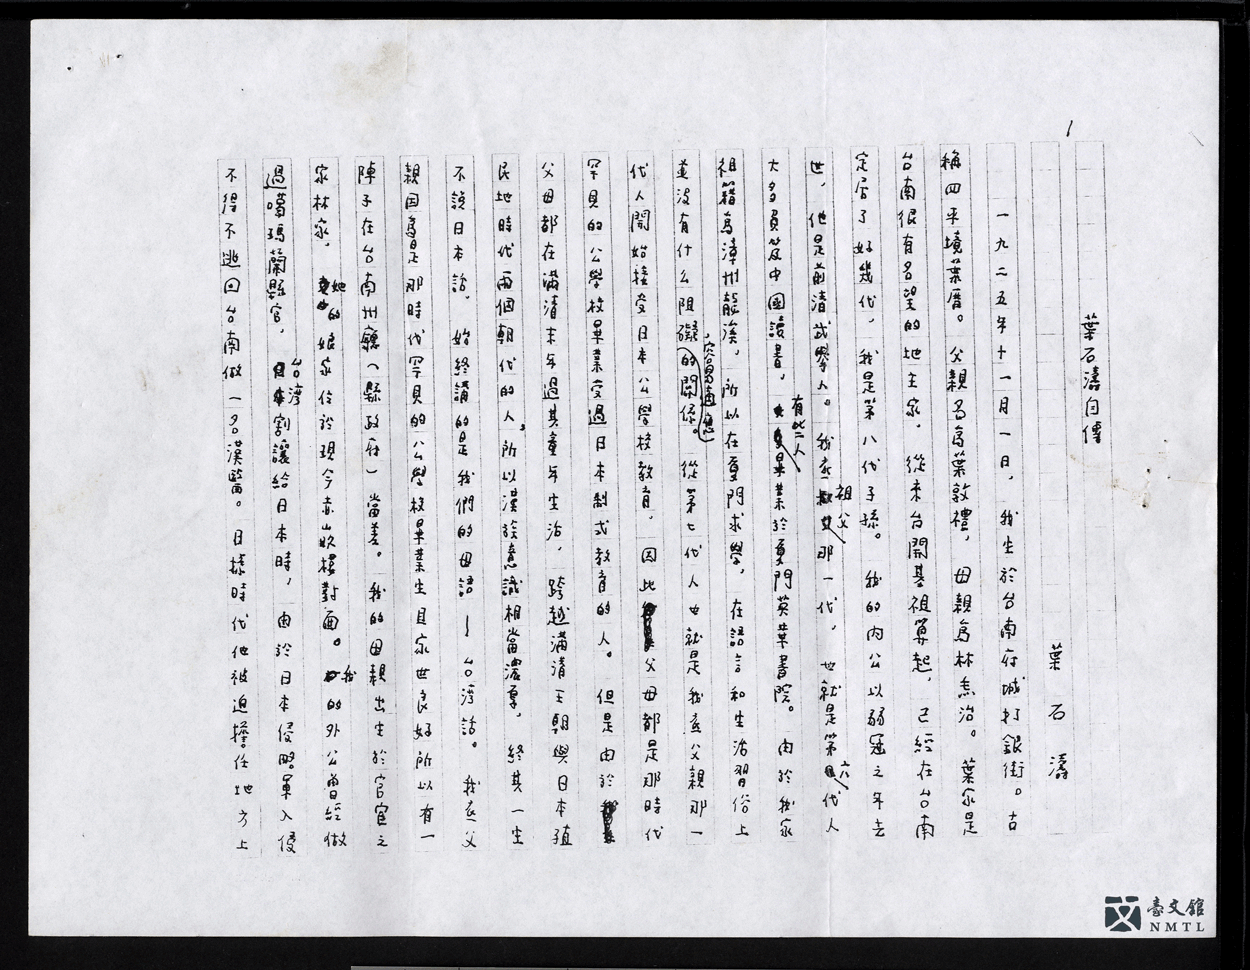 1
葉石濤自傳
葉石濤
一九二五年十一月一日，我生於台南府城打銀街。古
稱四平境葉厝。父親名為葉敦禮，母親為林焦治。葉家是
台南很有名望的地主家。從來台開基祖算起，已經在台南
定居了好幾代，我是第八代子孫。我的內公以弱冠之年去
世，他是前清武舉人。我家祖父那一代，也就是第六代人
大多負笈中國讀書，有些人畢業於廈門英華書院。由於我家
祖籍為漳州龍溪，所以在廈門求學，在語言和生活習俗上
並沒有什么阻礙容易適應的關係。從第七代人也就是我家父親那一
代人開始接受日本公學校教育，因此父母都是那時代
罕見的公學校畢業受過日本制式教育的人。但是由於
父母都在滿清末年過其童年生活，跨越滿清王朝與日本殖
民地時代兩個朝代的人，所以漢族意識相當濃厚，終其一生
不說日本話，始終講的是我們的母語—台灣話。我家父
親因為是那時代罕見的公學校畢業生且家世良好所以有一
陣子在台南州廳（縣政府）當差。我的母親出生於官宦之
家林家，她的娘家位於現今赤崁樓對面。我的外公曾經做
過噶瑪蘭縣官，台灣割讓給日本時，由於日本侵略軍入侵
不得不逃回台南做一名漢醫。日據時代他被迫擔任地方上
臺文館
NMTL